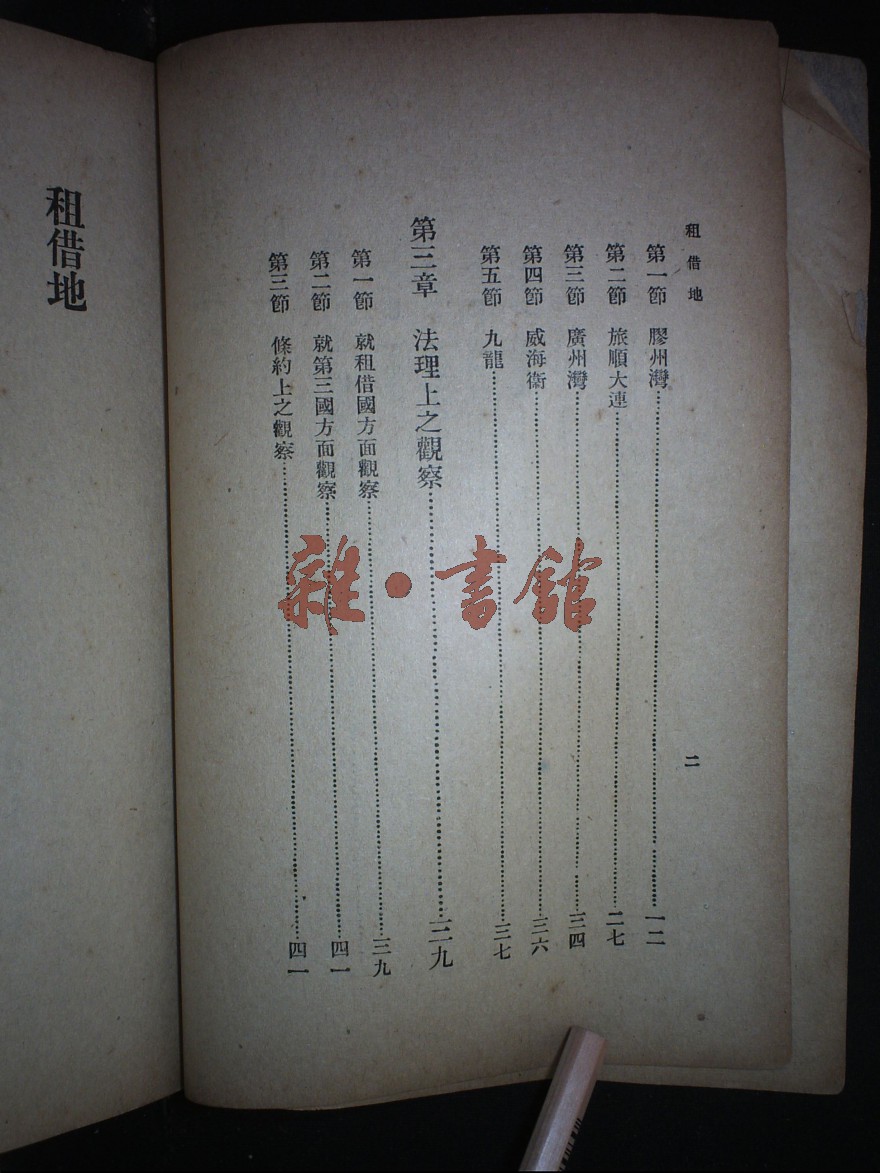 租借地
第一節 膠州灣……一二
第二節 旅順大連……二七
第三節 廣州灣……三四
第四節 威海衛……三六
第五節 九龍……三七
第三章 法理上之觀察……三九
第一節 就租借國方面觀察……三九
第二節 就第三國方面觀察……四一
第三節 條約上之觀察……四一
二
租借地
雜·書館